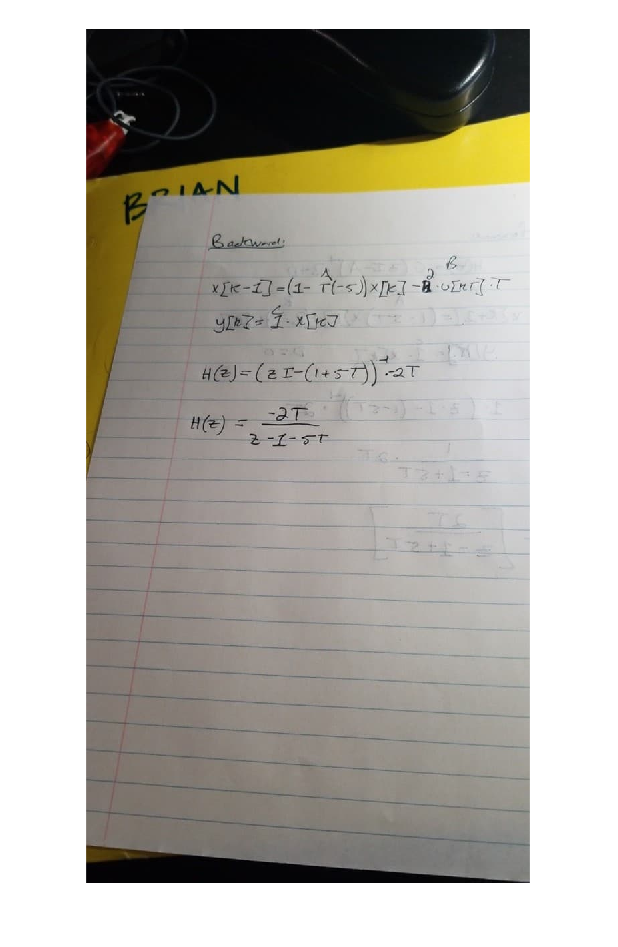 BRIAN
Backward:
A 2 B
x[k-1] = (1 - T(-5)) x[k] - 2 · u[kT] · T
C
y[k] = 1 · x[k]
H(z) = (z I - (1+5T))⁻¹ · -2T
H(z) = -2T / z - 1 - 5T